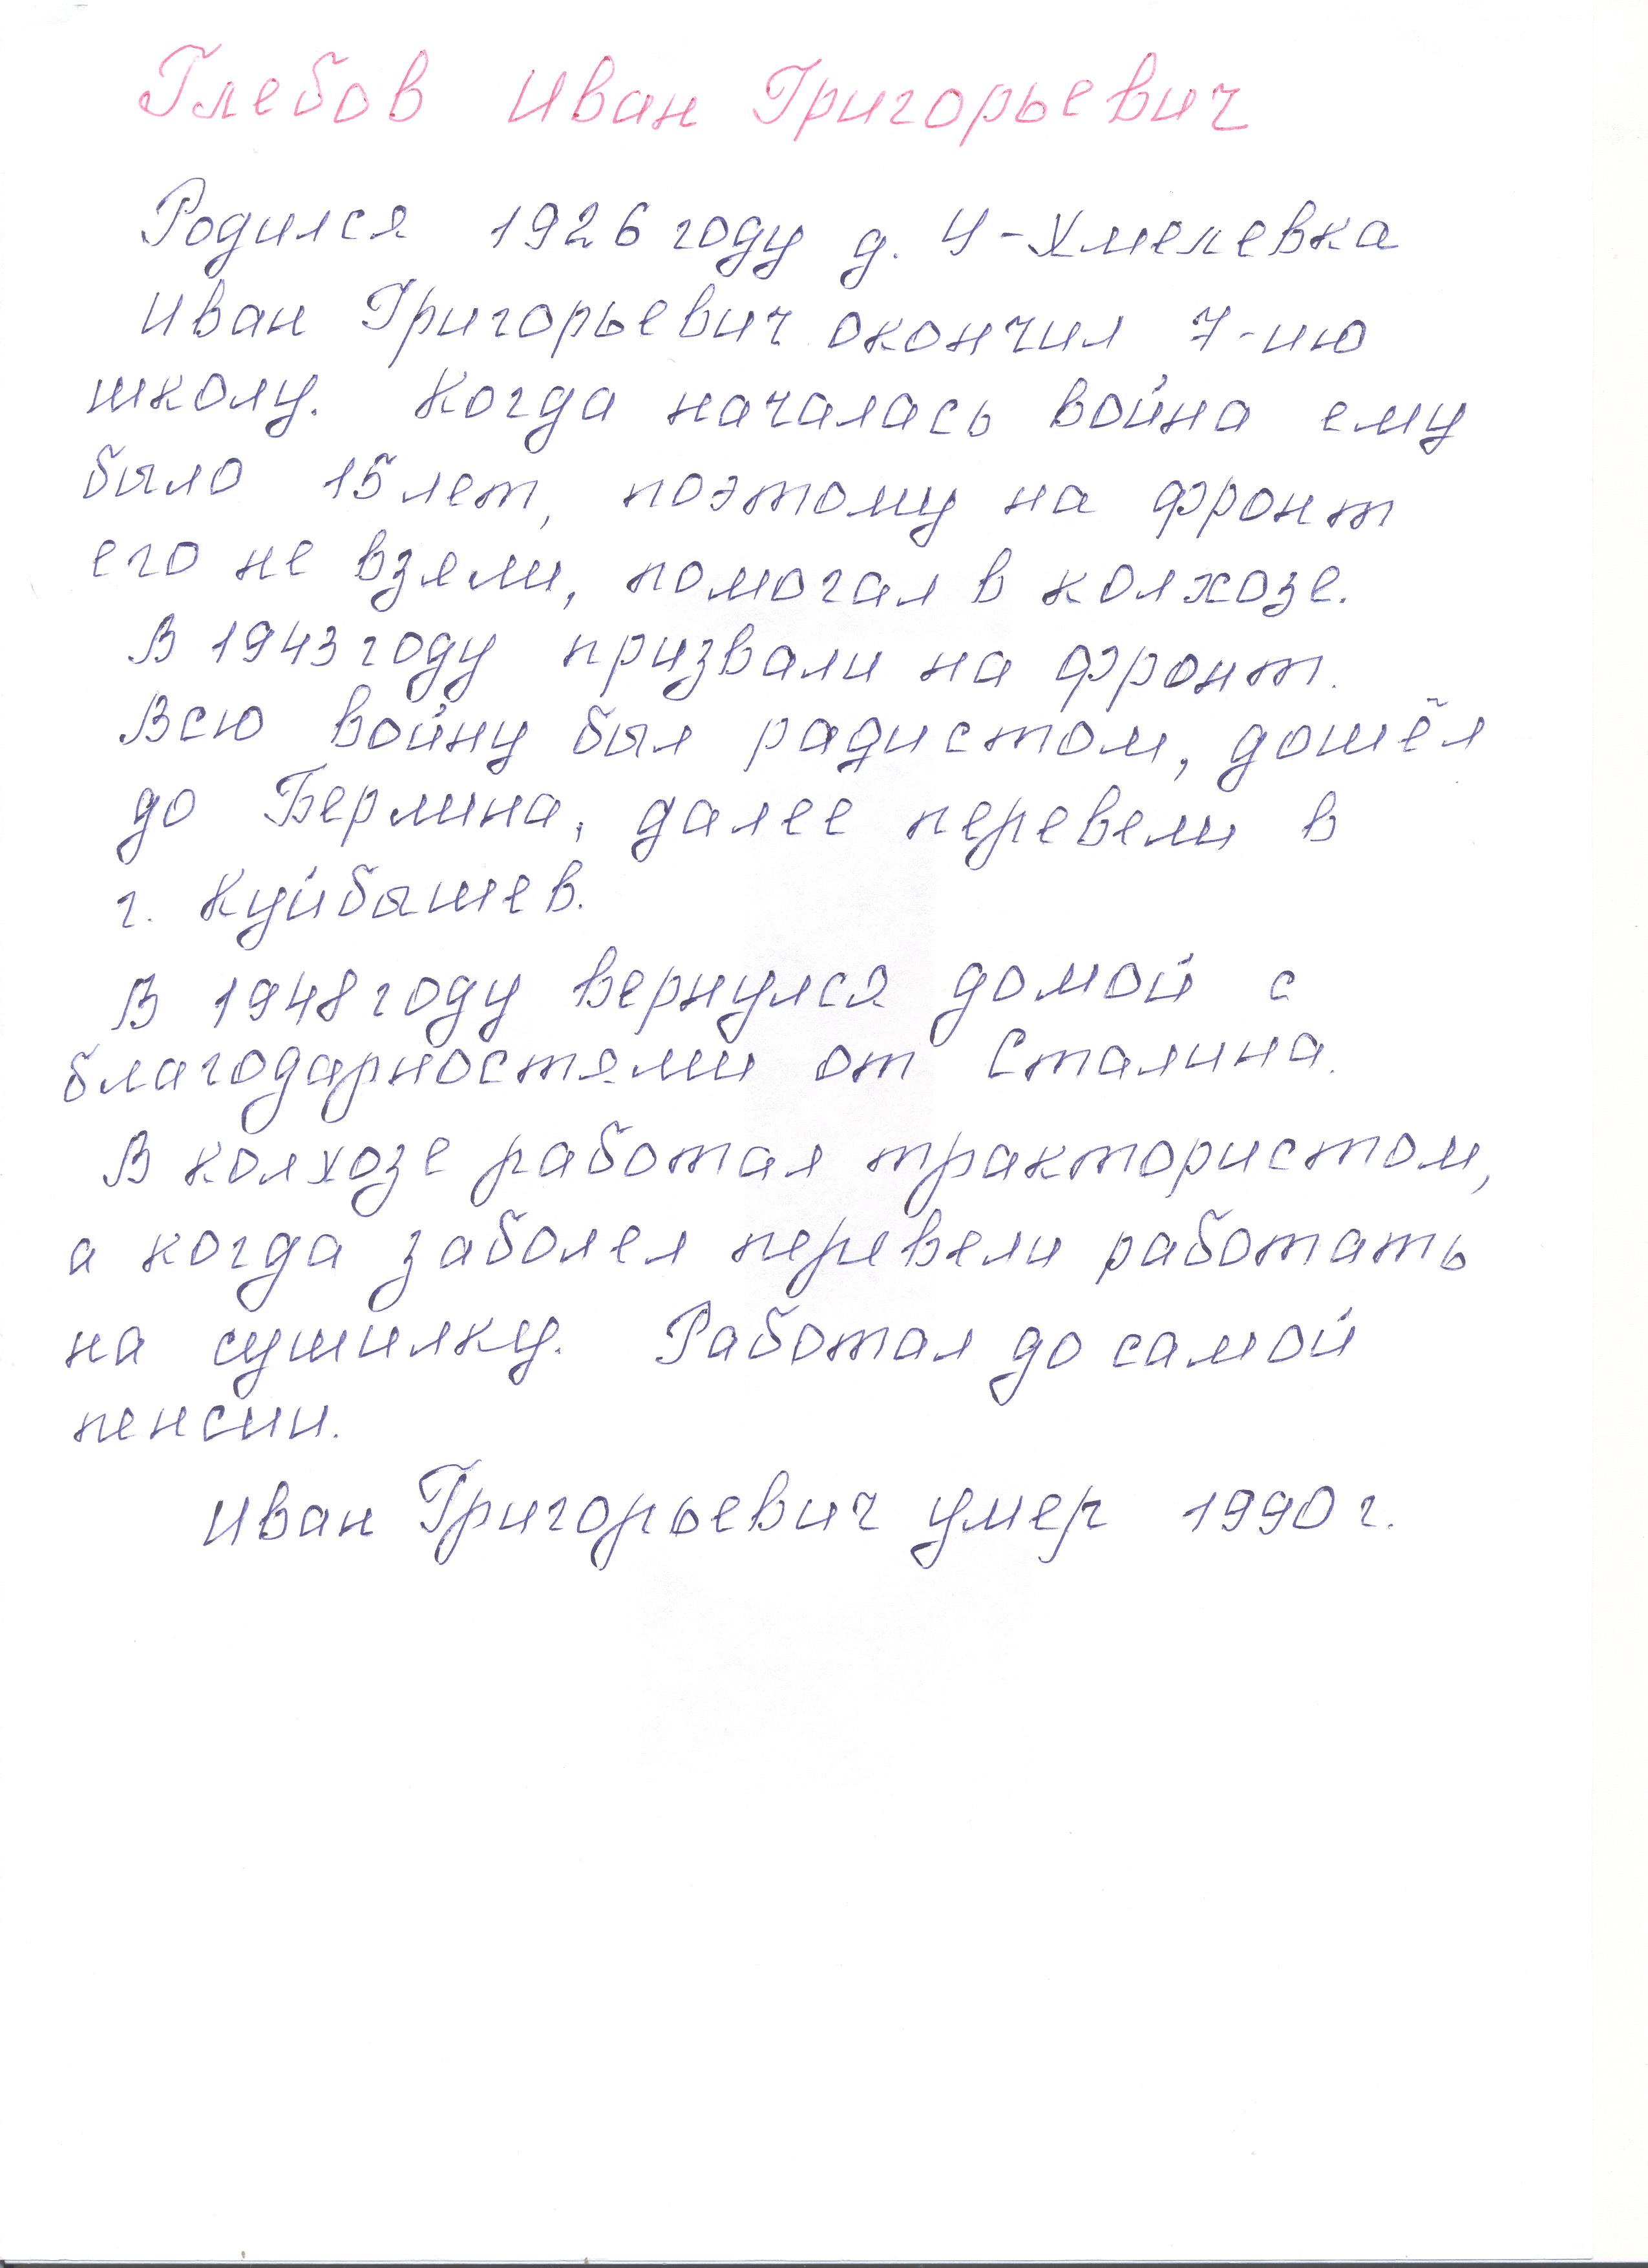 Глебов Иван Григорьевич
Родился 1926 году д. Ч-Хмелевка
Иван Григорьевич окончил 7-ию
школу. Когда началась война ему
было 15 лет, поэтому на фронт
его не взяли, помогал в колхозе.
В 1943 году призвали на фронт.
Всю войну был радистом, дошёл
до Берлина, далее перевели в
г. Куйбышев.
В 1948 году вернулся домой с
благодарностями от Сталина.
В колхозе работал трактористом,
а когда заболел перевели работать
на сушилку. Работал до самой
пенсии.
Иван Григорьевич умер 1990 г.